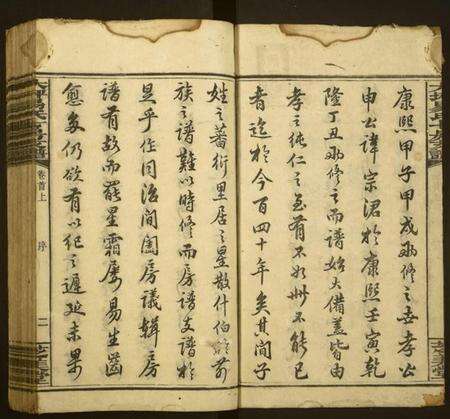 康熙甲子甲戌兩修之孝公
申公諱宗涒於康熙壬寅乾
隆丁丑兩修之而譜始大備蓋皆由
孝之純仁之至有不如此不能已
者迄於今百四十年矣其間子
姓之蕃衍里居之星散什伯於前
族之譜難以時修而房譜支譜於
是乎作同治間闔房議輯房
譜有故而罷星霜屢易生齒
愈多仍欲有以犯之遲延未果
卷首上
序
二